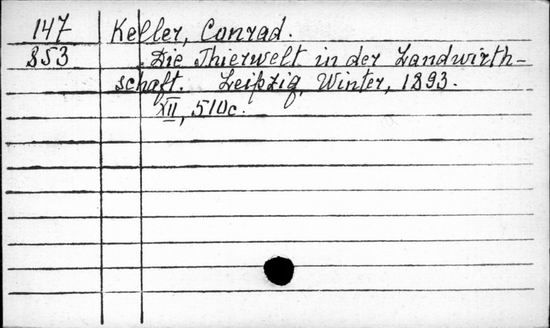 147 Keller, Conrad.
853 Die Thierwelt in der Landwirth-
schaft. Leipzig, Winter, 1893.
XII, 510c.